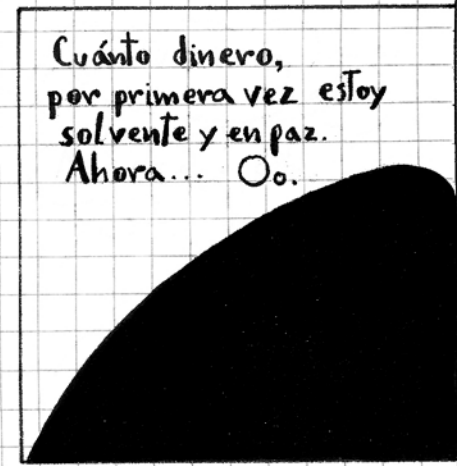 Cuánto dinero,
por primera vez estoy
solvente y en paz.
Ahora...